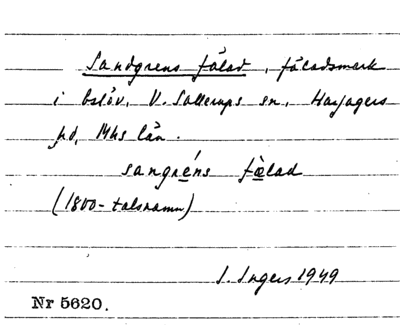 Sandgrens fälad, fäladsmark
i Eslöv, V. Sallerups sn, Harjagers
hd, Mhs län.
sangréns fä̀lad
(1800-talsnamn)
I. Ingers 1949
Nr 5620.